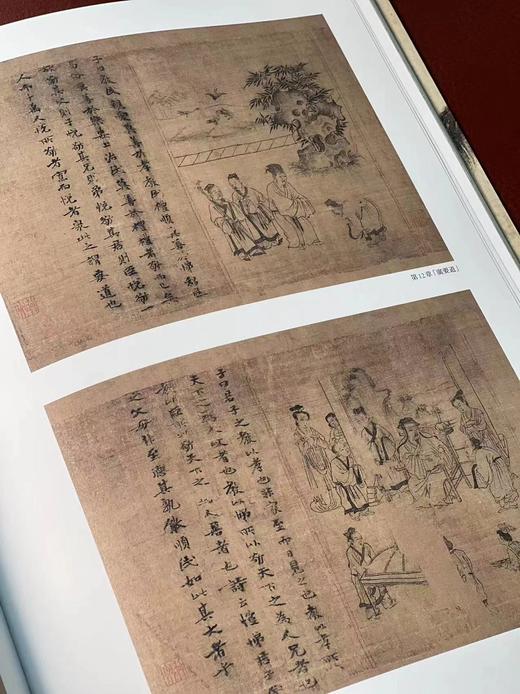 子曰教民親愛莫善於孝教民禮順莫善於悌移風
易俗莫善於樂安上治民莫善於禮禮者敬而已矣
故敬其父則子悅敬其兄則弟悅敬其君則臣悅敬一
人而千萬人悅所敬者寡而悅者衆此之謂要道也
第12章「廣要道」
子曰君子之教以孝也非家至而日見之也教以孝所
以敬天下之為人父者也教以悌所以敬天下之為人兄者也
教以臣所以敬天下之為人君者也詩云愷悌君子
民之父母非至德其孰能順民如此其大者乎